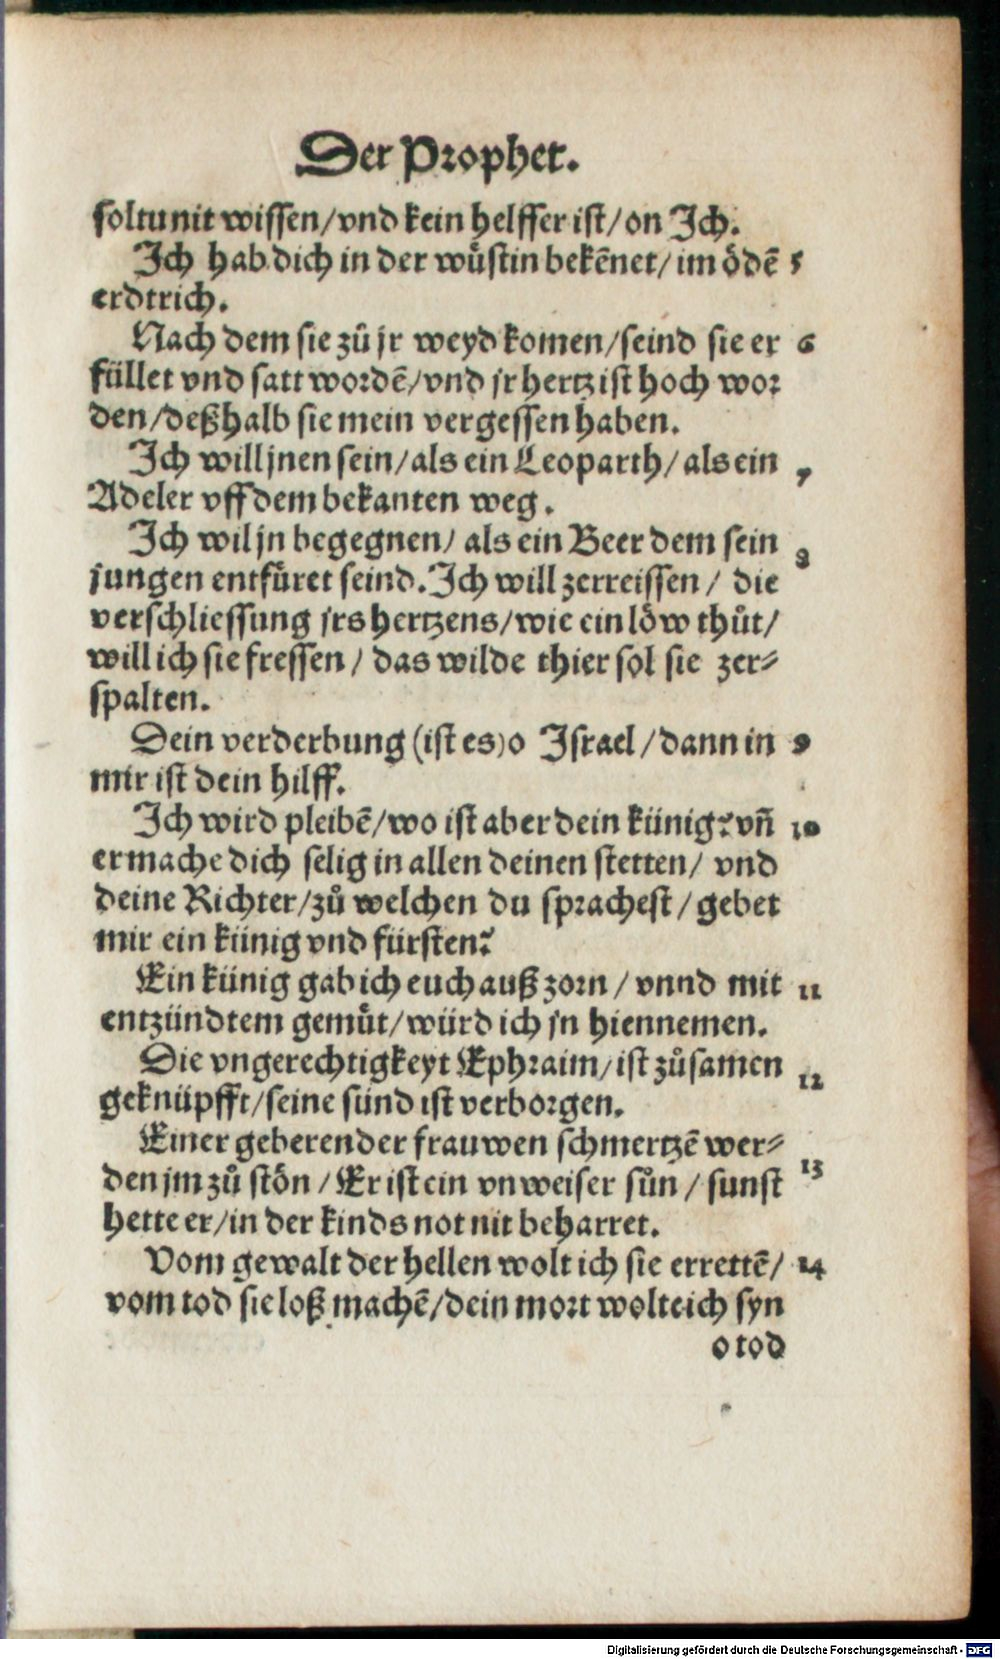 Der Prophet.
soltu nit wissen/vnd kein helffer ist/on Ich.
Ich hab dich in der wůstin bekēnet/im ödē 5
erdtrich.
Nach dem sie zů jr weyd komen/seind sie er 6
füllet vnd satt wordē/vnd jr hertz ist hoch wor
den/deßhalb sie mein vergessen haben.
Ich will jnen sein/als ein Leoparth/als ein 7
Adeler vff dem bekanten weg.
Ich wil jn begegnen/ als ein Beer dem sein 8
jungen entfüret seind. Ich will zerreissen/ die
verschliessung jrs hertzens/wie ein löw thůt/
will ich sie fressen/ das wilde thier sol sie zer⸗
spalten.
Dein verderbung (ist es) o Israel/dann in 9
mir ist dein hilff.
Ich wird pleibē/wo ist aber dein künig? vñ 10
er mache dich selig in allen deinen stetten/ vnd
deine Richter/zů welchen du sprachest/gebet
mir ein künig vnd fürsten?
Ein künig gab ich euch auß zorn/ vnnd mit 11
entzündtem gemůt/würd ich jn hiennemen.
Die vngerechtigkeyt Ephraim/ist zůsamen 12
geknüpfft/seine sünd ist verborgen.
Einer geberender frauwen schmertzē wer⸗ 13
den jm zů stön/Er ist ein vnweiser sůn/sunst
hette er/in der kinds not nit beharret.
Vom gewalt der hellen wolt ich sie errettē/ 14
vom tod sie loß machē/dein mort wolte ich syn
o tod
Digitalisierung gefördert durch die Deutsche Forschungsgemeinschaft - DFG